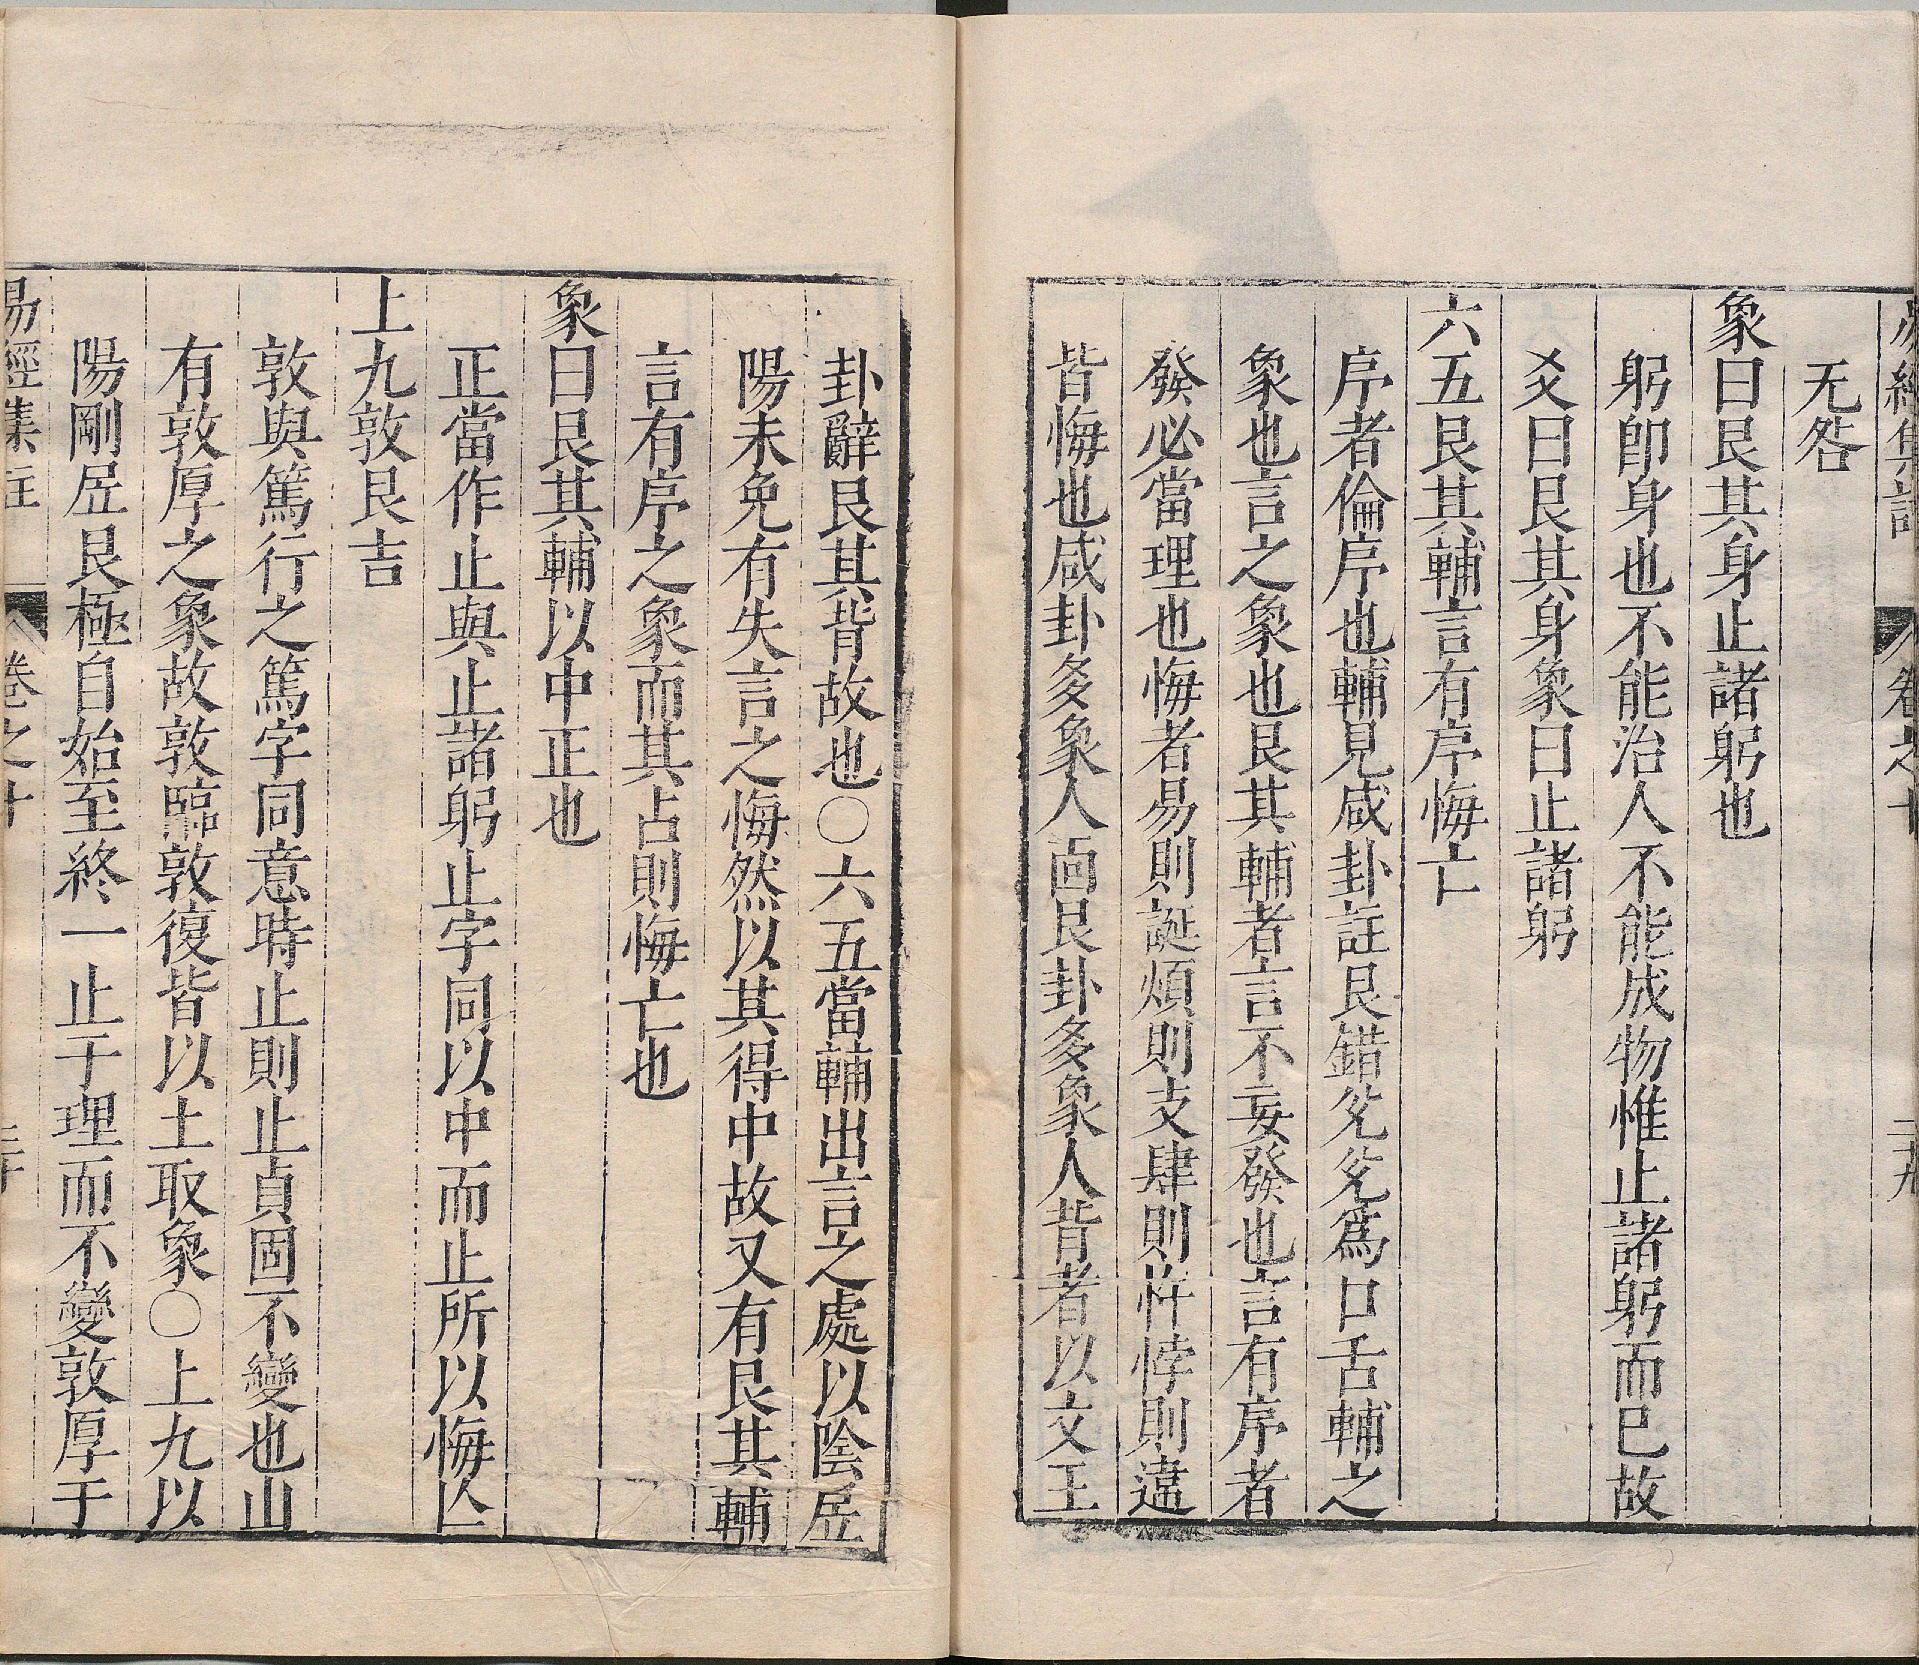 易經集註 卷之十 二十九
无咎
象曰艮其身止諸躬也
躬卽身也不能治人不能成物惟止諸躬而已故
爻曰艮其身象曰止諸躬
六五艮其輔言有序悔亡
序者倫序也輔見咸卦註艮錯兊兊爲口舌輔之
象也言之象也艮其輔者言不妄發也言有序者
發必當理也悔者易則誕煩則支肆則忤悖則違
皆悔也咸卦多象人面艮卦多象人背者以文王
卦辭艮其背故也〇六五當輔出言之處以陰居
陽未免有失言之悔然以其得中故又有艮其輔
言有序之象而其占則悔亡也
象曰艮其輔以中正也
正當作止與止諸躬止字同以中而止所以悔亾
上九敦艮吉
敦與篤行之篤字同意時止則止貞固不變也山
有敦厚之象故敦臨敦復皆以土取象〇上九以
陽剛居艮極自始至終一止于理而不變敦厚于
易經集註 卷之十 三十